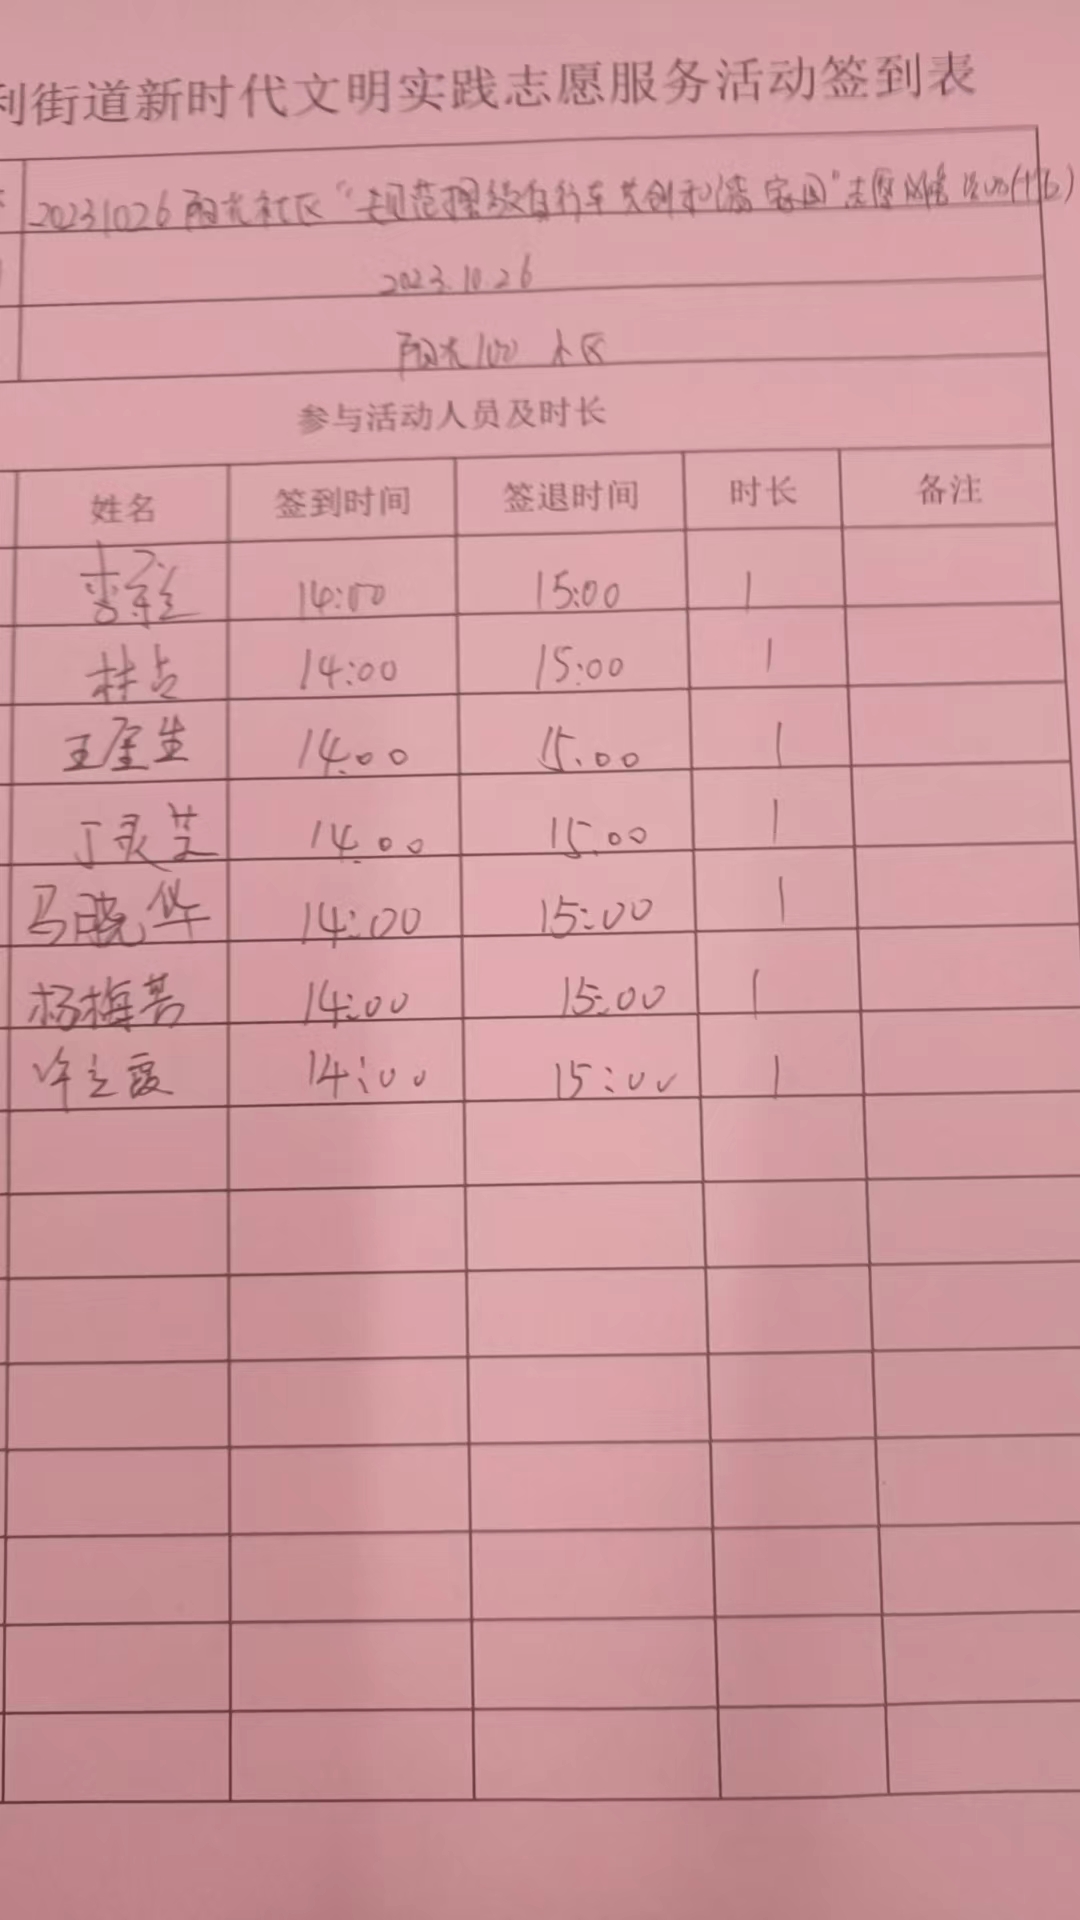 利街道新时代文明实践志愿服务活动签到表
20231026阳光社区“规范摆放自行车 共创和谐家园”志愿服务活动
2023.10.26
阳光100小区
参与活动人员及时长
姓名 签到时间 签退时间 时长 备注
李 14:00 15:00 1
林占 14:00 15:00 1
王金生 14:00 15:00 1
丁灵芝 14:00 15:00 1
马晓华 14:00 15:00 1
杨梅 14:00 15:00 1
许立霞 14:00 15:00 1